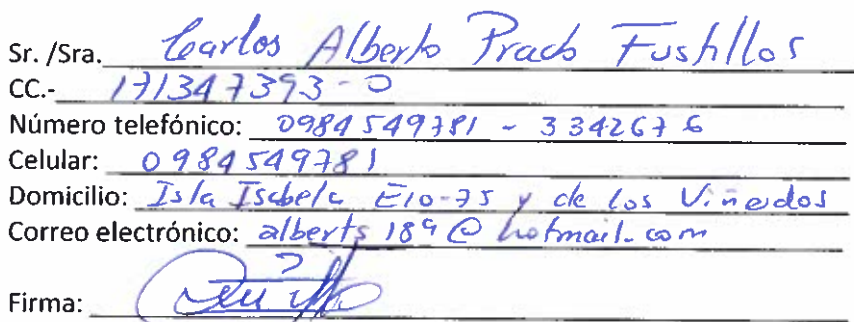 Sr. /Sra. Carlos Alberto Prado Fustillos
CC.- 171347393-0
Número telefónico: 0984549781 - 3342676
Celular: 0984549781
Domicilio: Isla Isabela E10-75 y de los Viñedos
Correo electrónico: alberts189@hotmail.com
Firma: